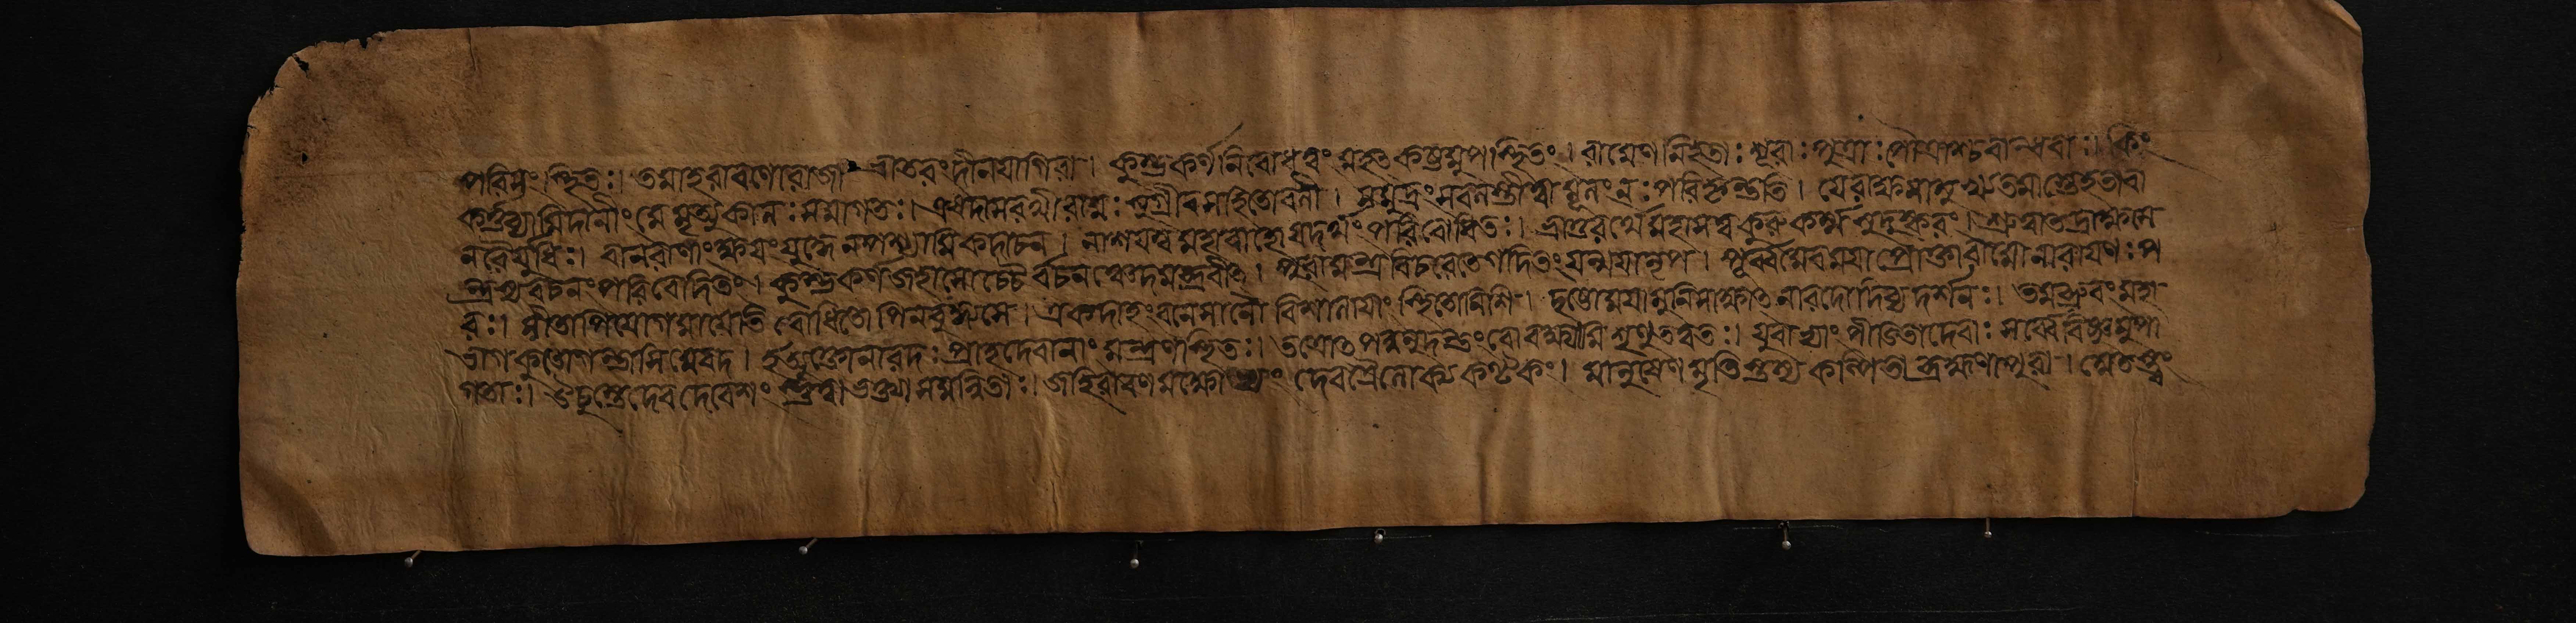 পরিসংস্থিতঃ। তমাহরাবণোরাজা ভ্রাতরংদীনযাগিরা। কুম্ভকর্ণনিবোধত্বং মহৎকষ্টমুপস্থিতং। রামেণনিহতাঃ শূরাঃ পুত্রাঃ পৌত্রাশ্চবান্ধবাঃ। কিং
কর্ত্তব্যমিদানীং মে মৃত্যুকালঃ সমাগতঃ। এষদাসরথীরামঃ সুগ্রীবসহিতোবলী। সমুদ্রংসবলস্তীর্ত্বা মূলং নঃ পরিকৃন্ততি। যেরাক্ষসামুখ্যতমাস্তেহতাবা
নরৈর্যুধিঃ। বানরাণাংক্ষযংযুদ্ধে নপশ্যামিকদাচন। নাশযস্ব মহাবাহো যদর্থং পরিবোধিতঃ। ভ্রাতুরর্থে মহাসত্ব কুরুকর্ম্ম সুদুষ্করং। শ্রুত্বাতদ্রাক্ষসে
ন্দ্রস্যবচনংপরিবোদিতং। কুম্ভকর্ণজহাসোচ্চৈ র্বচনঞ্চেদমব্রবীৎ। পুরামন্ত্রবিচারেতেগদিতংযন্মযানৃপ। পূর্ব্বমেবমযাপ্রোক্তোরামোনারাযণঃপ
রঃ। সীতাপিযোগমাযেতি বোধিতোপিনবুদ্ধ্যসে। একদাহংবনেসানৌ বিশালাযাং স্থিতোনিশি। দৃষ্টোমযামুনিসাক্ষাৎ নারদোদিব্যদর্শনঃ। তমব্রুবংমহা
ভাগকুতোগন্তাসিমেবদ। ইত্যুক্তোনারদঃপ্রাহদেবানাং মন্ত্রণেস্থিতঃ। তত্রোৎপন্নমুদন্তংবোবক্ষ্যামি শৃণুতত্বতঃ। যুবাভ্যাং পীডিতাদেবাঃ সর্ব্বেবিষ্ণুমুপা
গতাঃ। ঊচুস্তেদেবদেবেশং স্তুত্বাভক্ত্যাসমন্বিতাঃ। জহিরাবণমক্ষোভ্যং দেবত্রৈলোক্যকণ্টকং। মানুষেণমৃতিস্তস্য কল্পিতাব্রহ্মণাপুরা।